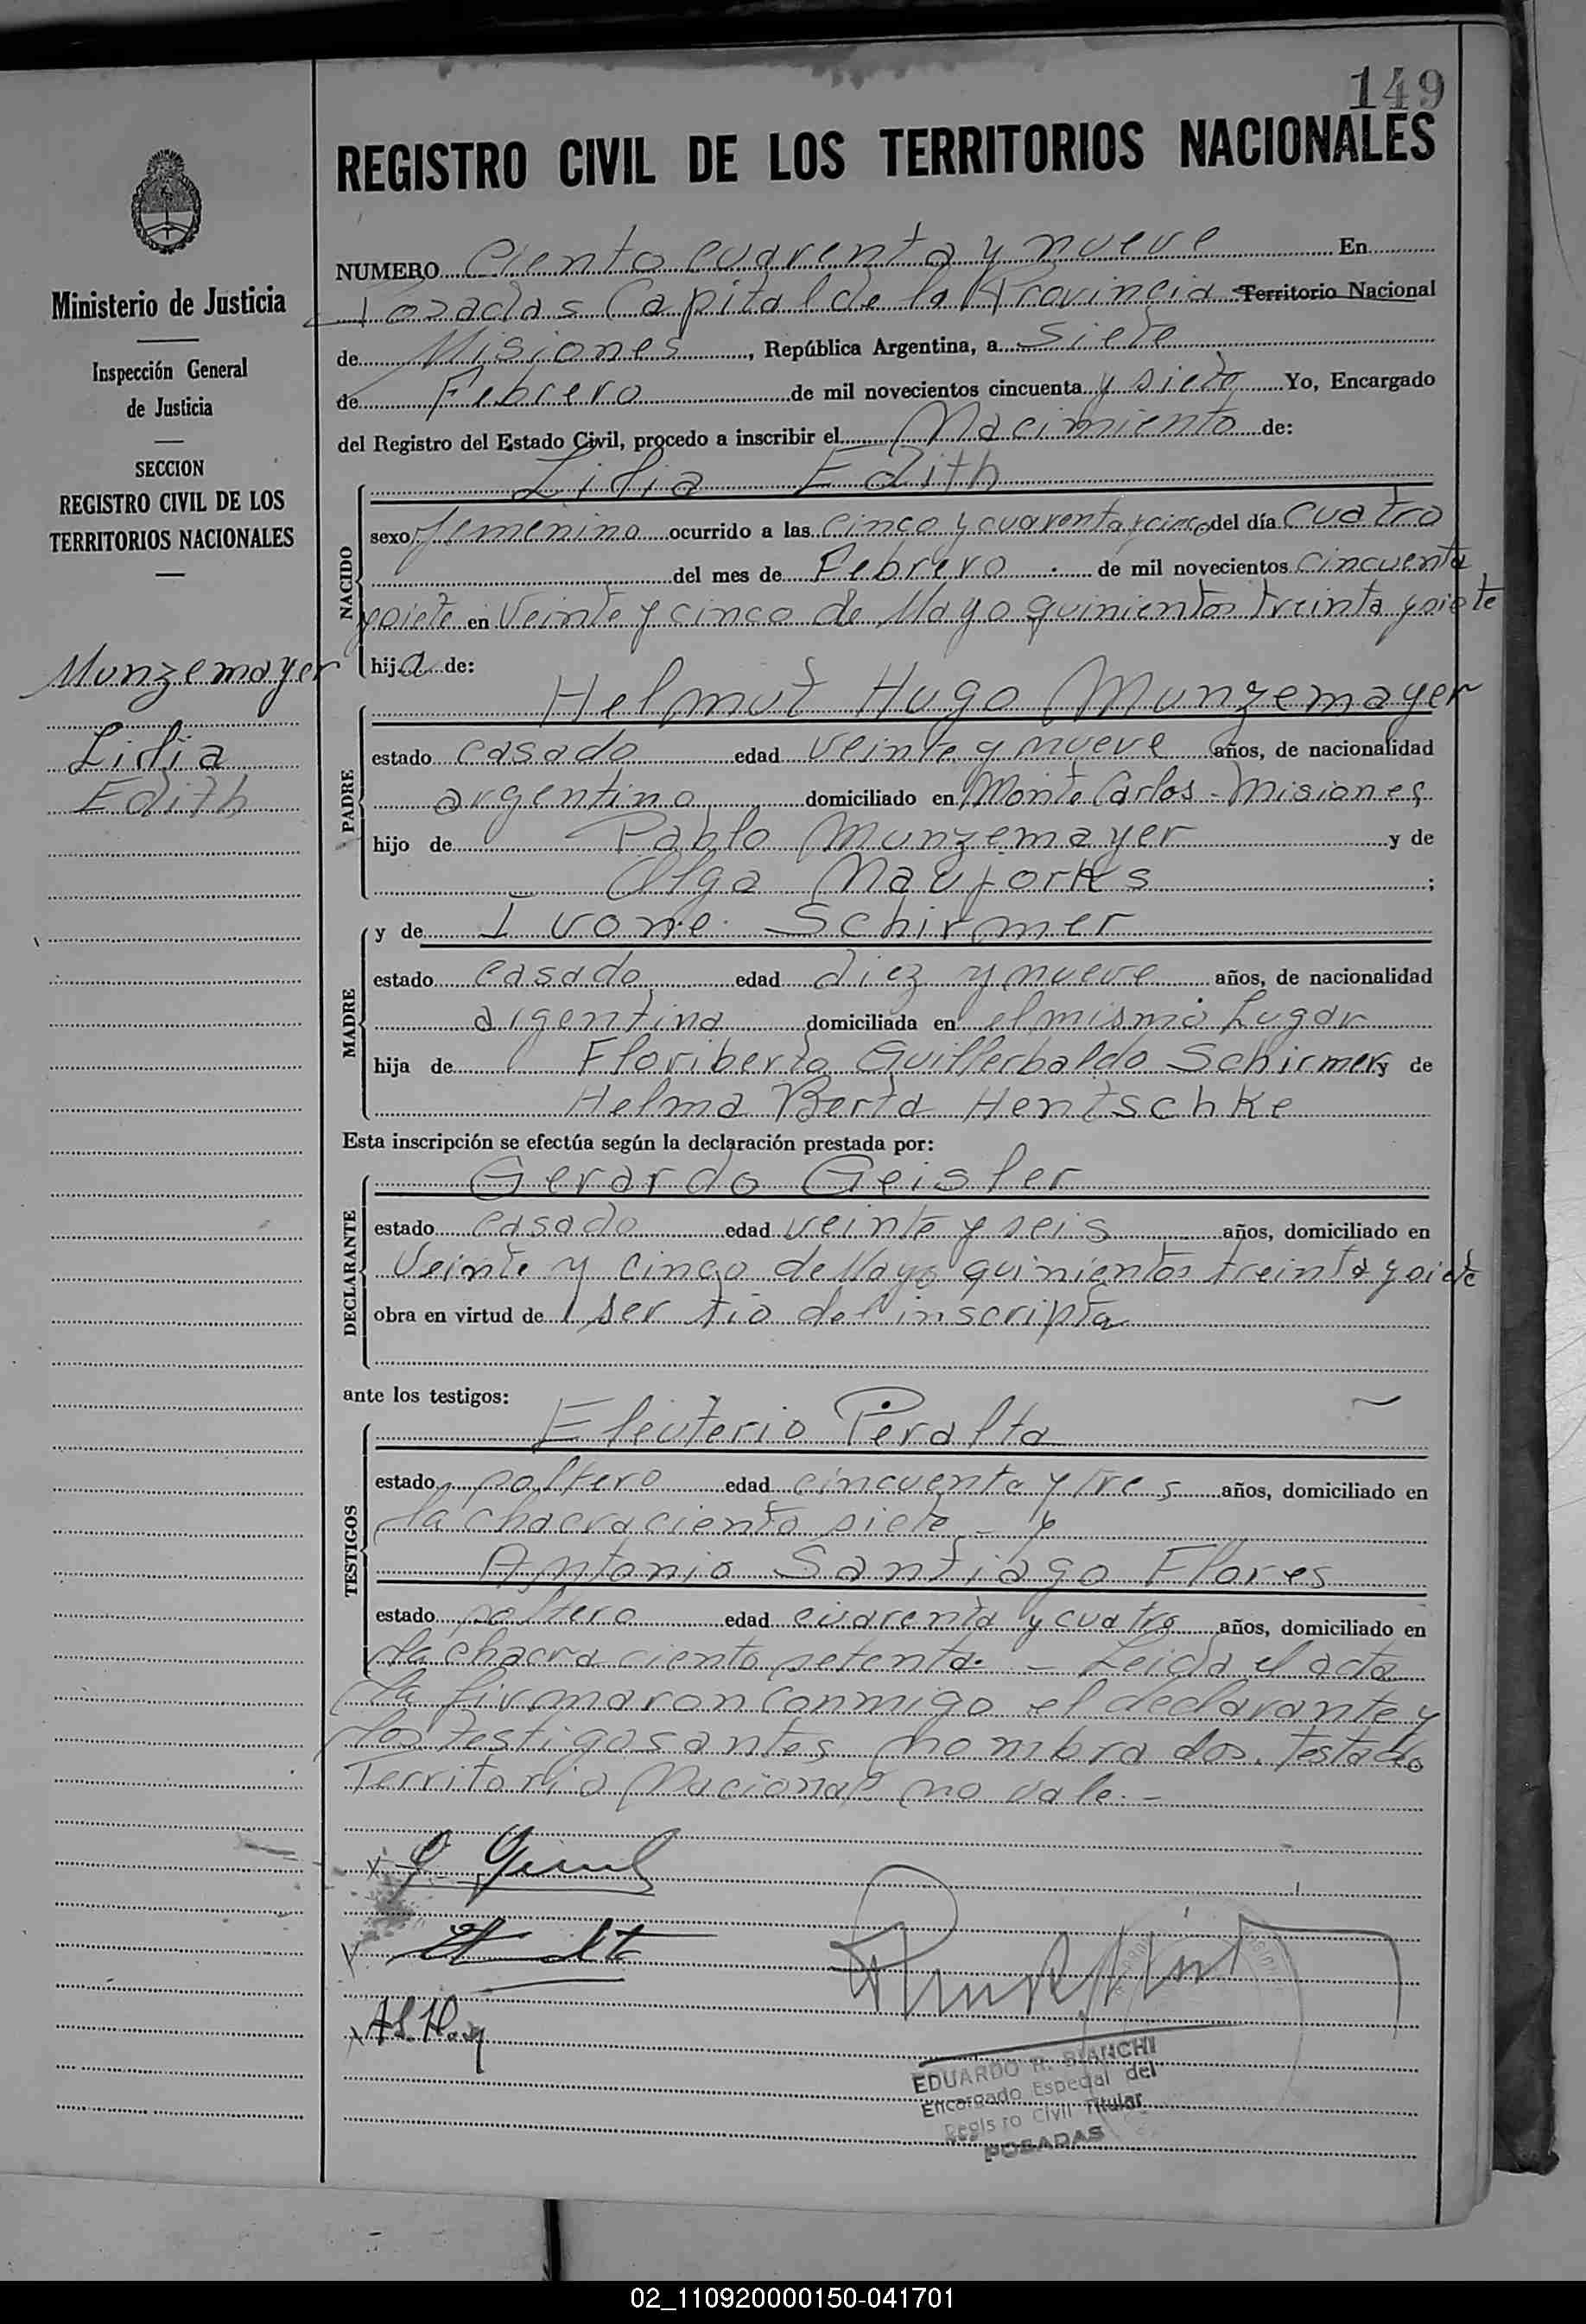 149
REGISTRO CIVIL DE LOS TERRITORIOS NACIONALES
Ministerio de Justicia
Inspección General
de Justicia
SECCION
REGISTRO CIVIL DE LOS
TERRITORIOS NACIONALES
Munzemayer
Lidia
Edith
NUMERO Ciento cuarenta y nueve En
Posadas Capital de la Provincia Territorio Nacional
de Misiones, República Argentina, a siete
de Febrero de mil novecientos cincuenta y siete Yo, Encargado
del Registro del Estado Civil, procedo a inscribir el Nacimiento de:
NACIDO
Lidia Edith
sexo femenino ocurrido a las cinco y cuarenta y cinco del día cuatro
del mes de Febrero de mil novecientos cincuenta
y siete en Veinte y cinco de Mayo quinientos treinta y siete
hija de:
PADRE
Helmut Hugo Munzemayer
estado casado edad veinte y nueve años, de nacionalidad
argentino domiciliado en Monte Carlos - Misiones
hijo de Pablo Munzemayer y de
Olga ;
MADRE
y de Ivone Schirmer
estado casado edad diez y nueve años, de nacionalidad
argentina domiciliada en el mismo Lugar
hija de Floriberto Schirmer y de
Helma Berta Hentschke
Esta inscripción se efectúa según la declaración prestada por:
DECLARANTE
Gerardo Geisler
estado casado edad veinte y seis años, domiciliado en
Veinte y cinco de Mayo quinientos treinta y siete
obra en virtud de ser tio del inscripta
ante los testigos:
TESTIGOS
Eleuterio Peralta
estado soltero edad cincuenta y tres años, domiciliado en
la chacra ciento siete - y
Antonio Santiago Flores
estado soltero edad cuarenta y cuatro años, domiciliado en
la chacra ciento setenta. - Leida el acta
la firmaron conmigo el declarante y
los testigos antes nombrados. Testado
Territorio Nacional no vale. -
EDUARDO R. BIANCHI
Encargado Especial del
Regis ro Civil Titular
POSADAS
02_110920000150-041701